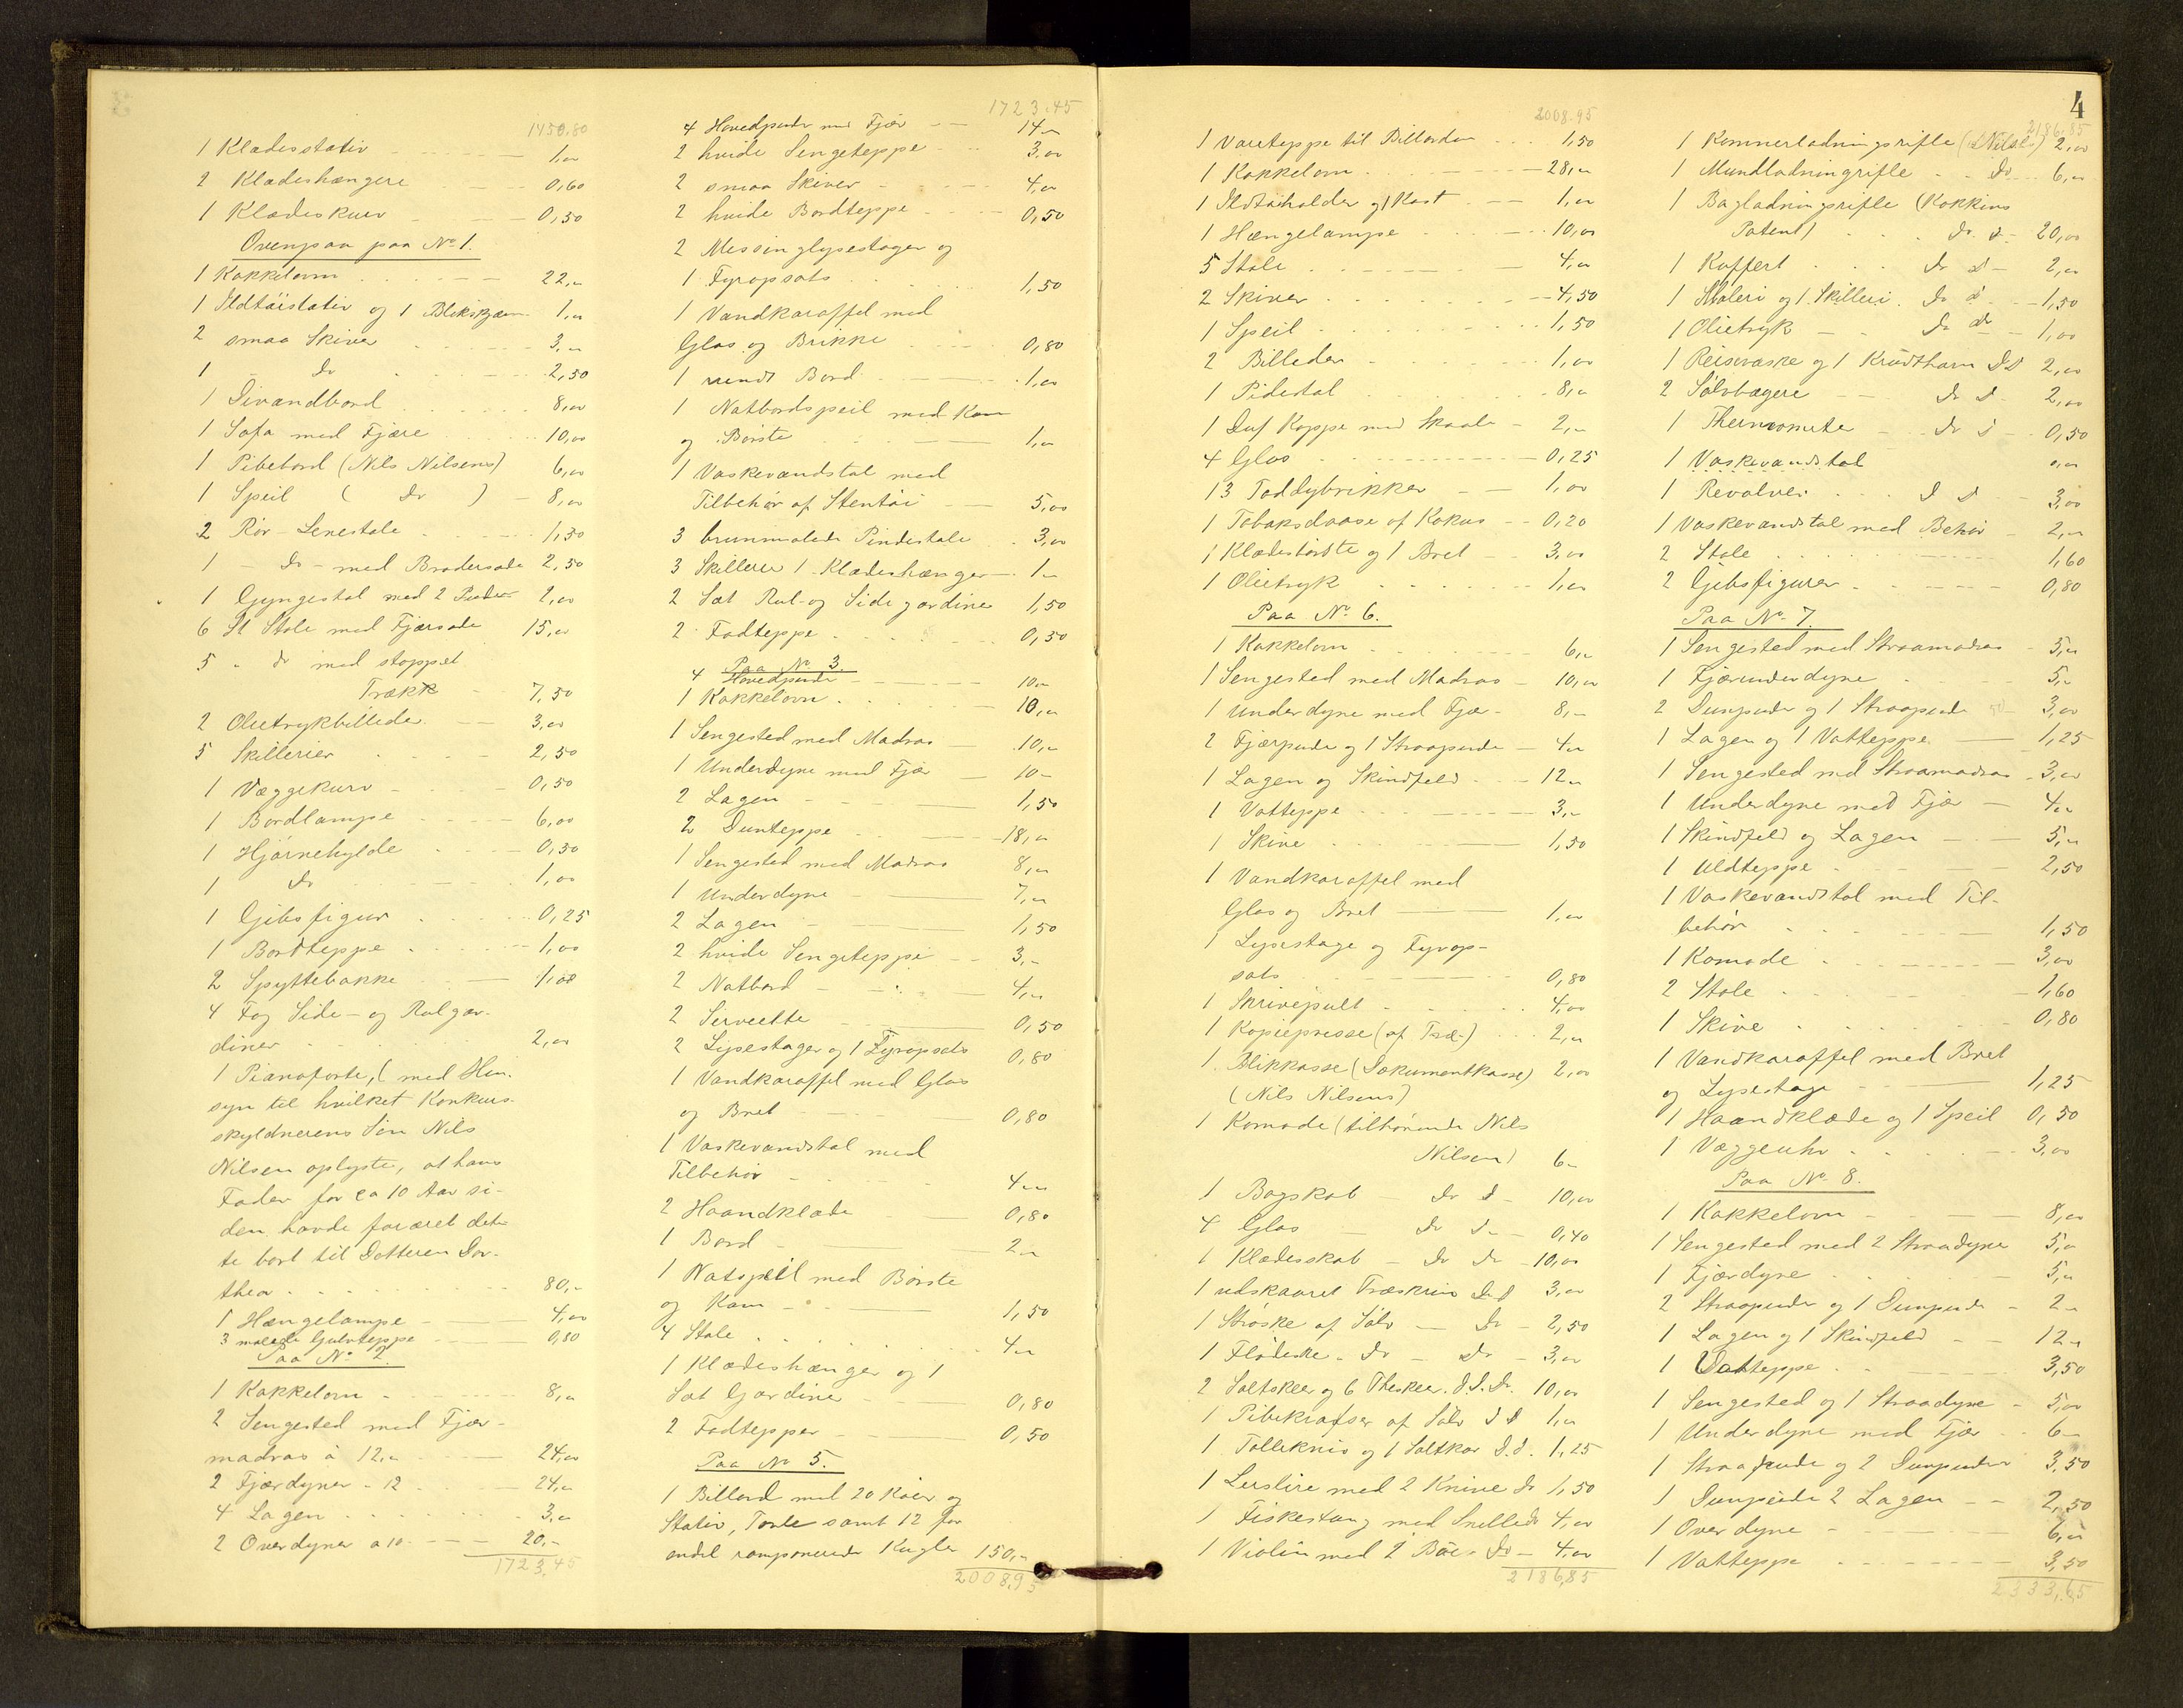 1450.80
1 Klædesstativ 1,00
2 Klædeshængere 0,60
1 Klædeskurv 0,50
Ovenpaa paa No 1.
1 Kakkelovn 22,"
1 Ildtöistativ og 1 Blikskjærm 1,"
2 smaa Skiver 3,"
1 - Do 2,50
1 Divandbord 8,00
1 Sofa med Fjære 10,00
1 Pibebord (Nils Nilsens) 6,00
1 Speil ( Do ) - 8,00
2 Rör-Lenestole 1,50
1 - Do - med Brodersode 2,50
1 Gyngestol med 2 Puder 2,00
6 St Stole med Fjærsæde 15,00
5 " do med stoppet
Trækk 7,50
2 Olietrykbilleder 3,00
5 Skillerier 2,50
1 Væggekurv 0,50
1 Bordlampe 6,00
1 Hjörnehylde 0,50
1 Do 1,00
1 Gibsfigur 0,25
1 Bordteppe 1,00
2 Spyttebakke 1,00
4 Fag Side- og Rulgar-
diner 2,00
1 Pianoforte, (med Hen-
syn til hvilket Konkurs-
skyldnerens Sön Nils
Nilsen oplyste, at hans
Fader for ca 10 Aar si-
den havde foræret det-
te bort til Datteren Dor-
thea 80,-
1 Hængelampe 4,00
3 malede Gulvteppe 0,80
Paa No 2.
1 Kakkelovn 8,"
2 Sengested med Fjær-
madras à 12," 24,00
2 Fjærdyner - 12 24,"
4 Lagen 3,"
2 Overdyner a 10 20,-
1723,45
1723.45
4 Hovedpuder med Fjær 14"
2 hvide Sengeteppe 3,00
2 smaa Skiver 4,"
2 hvide Bordteppe 0,50
2 Messinglysestager og
1 Fyropsats 1,50
1 Vandkaraffel med
Glas og Brikke 0,80
1 rundt Bord 1,00
1 Natbordspeil med Kam
og Börste 1,"
1 Vaskevandstol med
Tilbehör af Stentöi 5,00
3 brunmalede Pindestole 3,00
3 Skillerier 1 Klædeshænger 1"
2 Sæt Rul- og Sidegardiner 1,50
2 Fodteppe 0,50
Paa No 3.
4 Hovedpuder 10"
1 Kakkelovn 10,"
1 Sengested med Madras 10,"
1 Underdyne med Fjær 10-
2 Lagen 1,50
2 Dunteppe 18,"
1 Sengested med Madras 8,"
1 Underdyne 7,"
2 Lagen 1,50
2 hvide Sengeteppe 3,-
2 Natbord 4,"
2 Serviette 0,50
2 Lysestager og 1 Fyropsats 0,80
1 Vandkaraffel med Glas
og Bret 0,80
1 Vaskevandstol med
Tilbehör 4"
2 Haandklæde 0,80
1 Bord 2"
1 Natspeil med Börste
og Kam 1,50
4 Stole 4"
1 Klædeshænger og 1
Sæt Gardiner 0,80
2 Fodtepper 0,50
Paa No 5.
1 Billard med 20 Köer og
Stativ, Tavle samt 12 for
endel ramponerede Kugler 150,-
2008,95
2008.95
1 Voxteppe til Billardet 1,50
1 Kakkelovn 28,"
1 Ildtöiholder og 1 Kost 1,"
1 Hængelampe 10,00
5 Stole 4,"
2 Skiver 4,50
1 Speil 1,50
2 Billeder 1,00
1 Pidestal 8,"
1 Duf Koppe med Skaale 2,"
4 Glas 0,25
13 Toddybrikker 1,00
1 Tobaksdaase af Kokus 0,20
1 Klædesbörste og 1 Bret 3,00
1 Olietryk 1,"
Paa No 6.
1 Kakkelovn 6,"
1 Sengested med Madras 10,"
1 Underdyne med Fjær 8,-
2 Fjærpuder og 1 Straapude 4"
1 Lagen og Skindfeld 12"
1 Vatteppe 3,"
1 Skive 1,50
1 Vandkaraffel med
Glas og Bret 1,00
1 Lysestage og Fyrop-
sats 0,80
1 Skrivepult 4,00
1 Kopiepresse (af Træ) 2,"
1 Blikkasse (Dokumentkasse) 2,00
(Nils Nilsens)
1 Komode (tilhörende Nils
Nilsen) 6-
1 Bogskab - do d - 10,00
4 Glas do d- 0,40
1 Klædesskab - do do - 10,00
1 udskaaret Træskrin d d 3,00
1 Ströske af Sölv - do - 2,50
1 Flödeske - do - do - 3,00
2 Saltskeer og 6 Theskeer. d. d. do. 10,00
1 Pibekradser af Sölv d d 1,"
1 Tollekniv og 1 Saltkar d. d. 1,25
1 Lerslire med 2 Knive do 1,50
1 Fiskestang med Snelle do 4,00
1 Violin med 2 Buer do - 4,00
2186,85
4
2186.85
1 Kammerladningsrifle (N Nilsens) 2,00
1 Mundladningrifle do 6,"
1 Bagladningsrifle (Kokkins
Patent) do. d. 20,00
1 Koffert do d - 2,"
1 Maleri og 1 Skilleri do d 1,50
1 Olietryk do do 1,00
1 Reisevæske og 1 Krudthorn d d 2,00
2 Sölvbægere do d 2,00
1 Thermometer do d 0,50
1 Vaskevandstol "
1 Revolver d d 3,00
1 Vaskevandstol med Behör 2,"
2 Stole 1,60
2 Gibsfigurer 0,80
Paa No 7.
1 Sengested med Straamadras 5,"
1 Fjærunderdyne 5,"
2 Dunpuder og 1 Straapude 3,00
1 Lagen og 1 Vatteppe 1,25
1 Sengested med Straamadras 3,00
1 Underdyne med Fjær 4"
1 Skindfeld og Lagen 5,"
1 Uldteppe 2,50
1 Vaskevandstol med Til-
behör 1,50
1 Komode 3,00
2 Stole 1,60
1 Skive 0,80
1 Vandkaraffel med Bret
og Lysestage 1,25
1 Haandklæde og 1 Speil 0,50
1 Væggeuhr 3,00
Paa No 8.
1 Kakkelovn 8,00
1 Sengested med 2 Straadyne 5,"
1 Fjærdyne 5,"
2 Straapuder og 1 Dunpude 2"
1 Lagen og 1 Skindfeld 12"
1 Vatteppe 3,50
1 Sengested og 1 Straadyne 5,00
1 Underdyne med Fjær 6-
1 Straapude og 2 Dunpuder 3,50
1 Dunpude 2 Lagen 2,50
1 Overdyne 6,"
1 Vatteppe 3,50
2333,65